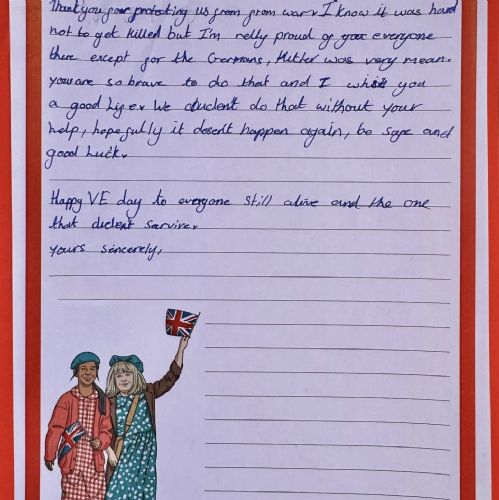 Thankyou for protecting us from from war. I know it was hard
not to get killed but I'm relly proud of you everyone
there except for the Germans, Hitler was very mean.
you are so brave to do that and I whish you
a good life. We dudent do that without your
help, hopefully it desent happen again, be safe and
good luck.
Happy VE day to everyone still alive and the one
that dident survive.
yours sincerely,